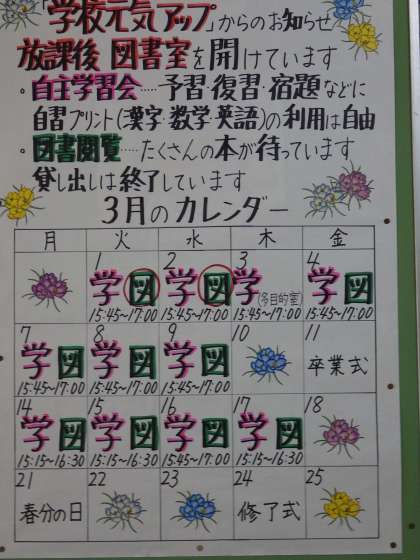 「学校元気アップ」からのお知らせ
放課後 図書室を開けています
・自主学習会‥‥予習・復習・宿題などに
自習プリント(漢字・数学・英語)の利用は自由
・図書閲覧‥‥たくさんの本が待っています
貸し出しは終了しています
3月のカレンダー
月 火 水 木 金
1 2 3 4
学図 学図 学(多目的室) 学図
15:45~17:00 15:45~17:00 15:45~17:00 15:45~17:00
7 8 9 10 11
学図 学図 学図 卒業式
15:45~17:00 15:45~17:00 15:45~17:00
14 15 16 17 18
学図 学図 学図 学図
15:15~16:30 15:15~16:30 15:45~17:00 15:15~16:30
21 22 23 24 25
春分の日 修了式